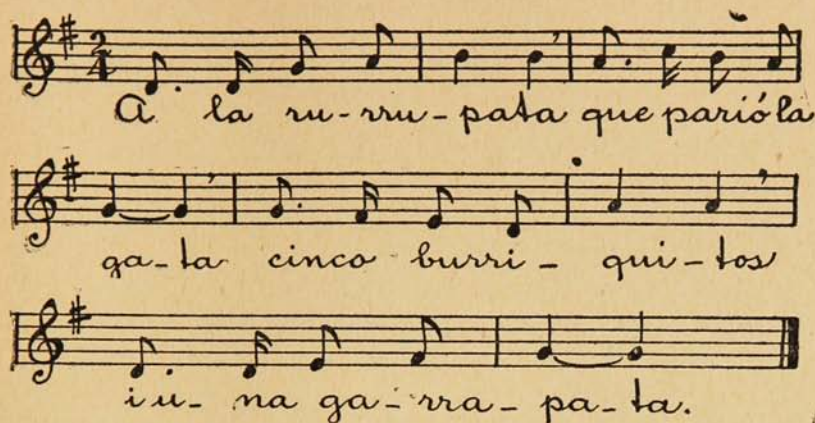 2
4
A la ru-rru-pata que parióla
ga-ta cinco burri- qui-tos
i u- na ga-rra-pa-ta.